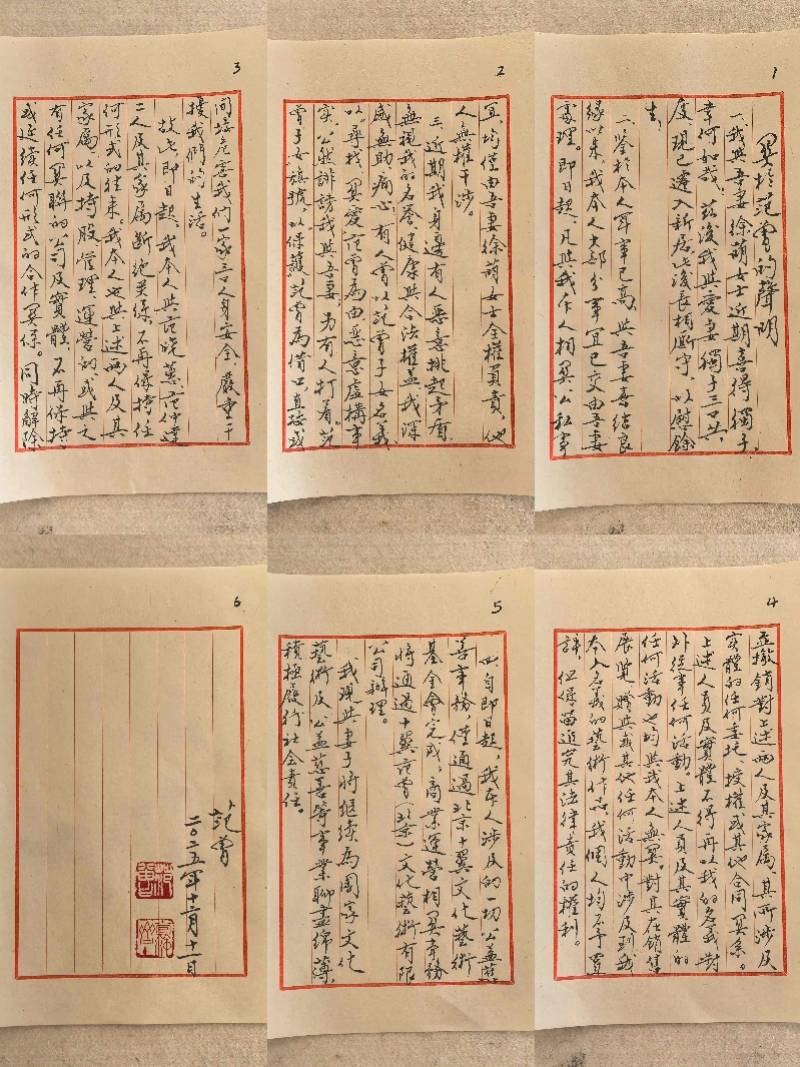 1
关于范曾的声明
一、我与吾妻徐萌女士近期喜得独子,
幸何如哉。兹后我与爱妻独子三口共
度,现已迁入新居,此后长相厮守,以慰余
生。
二、鉴于本人年事已高,与吾妻喜结良
缘以来,我本人大部分事宜已交由吾妻
处理。即日起,凡与我本人相关,公私事
2
宜,均仅由吾妻徐萌女士全权负责,他
人无权干涉。
三、近期我身边有人恶意挑起矛盾,
无视我的名誉、健康与合法权益,我深
感无助痛心,有人曾以范曾子女名义
以寻找、关爱范曾为由恶意虚构事
实,公然诽谤我与吾妻,另有人打着范
曾子女旗号,以保护范曾为借口,直接或
3
间接危害我们一家三口人身安全,严重干
扰我们的生活。
故此,即日起,我本人与范晓蕙、范仲达
二人及其家属断绝关系,不再保持任
何形式的往来。我本人也与上述两人及其
家属,以及持股、管理、运营的或与之
有任何关联的公司及实体,不再保持
或延续任何形式的合作关系。同时解除
4
并撤销对上述两人及其家属、其所涉及
实体的任何委托、授权或其他合同关系。
上述人员及实体不得再以我的名义对
外从事任何活动。上述人员及其实体的
任何活动也均与我本人无关。对其在销售
展览赠与或其他任何活动中涉及到我
本人名义的艺术作品,我个人均不予置
评,但保留追究其法律责任的权利。
5
四、自即日起,我本人涉及的一切公益慈
善事务,仅通过北京十翼文化艺术
基金会完成,商业运营相关事务
将通过十翼范曾(北京)文化艺术有限
公司办理。
我现与妻子将继续为国家文化
艺术及公益慈善等事业聊尽绵薄,
积极履行社会责任。
6
范曾
二〇二五年十二月十一日